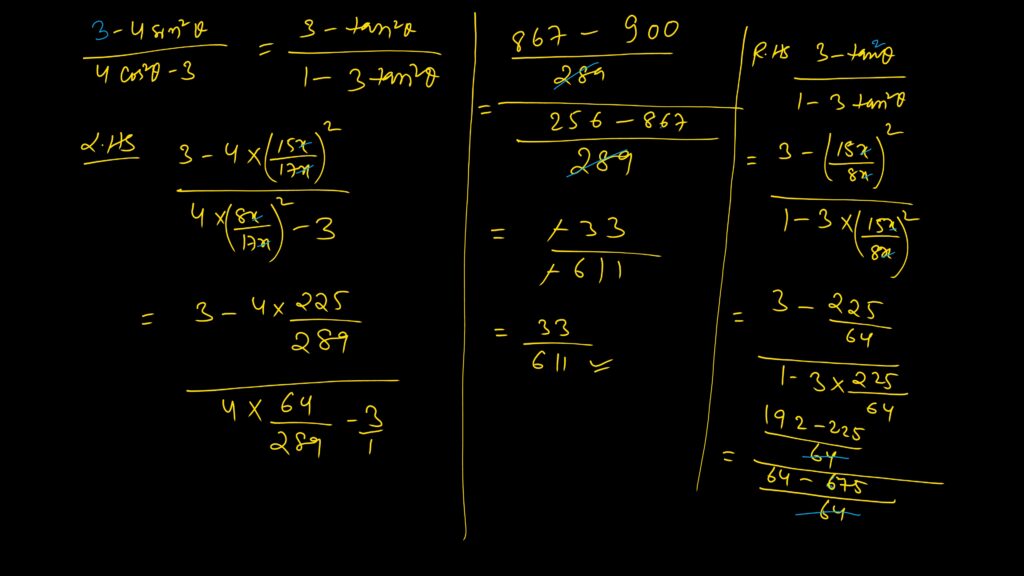 (3 - 4 sin²θ)/(4 cos²θ - 3) = (3 - tan²θ)/(1 - 3 tan²θ)
L.HS (3 - 4 × (15x/17x)²)/(4 × (8x/17x)² - 3)
= (3 - 4 × 225/289)/(4 × 64/289 - 3/1)
= ((867 - 900)/289)/((256 - 867)/289)
= -33/-611
= 33/611 ✓
R.HS (3 - tan²θ)/(1 - 3 tan²θ)
= (3 - (15x/8x)²)/(1 - 3 × (15x/8x)²)
= (3 - 225/64)/(1 - 3 × 225/64)
= ((192 - 225)/64)/((64 - 675)/64)